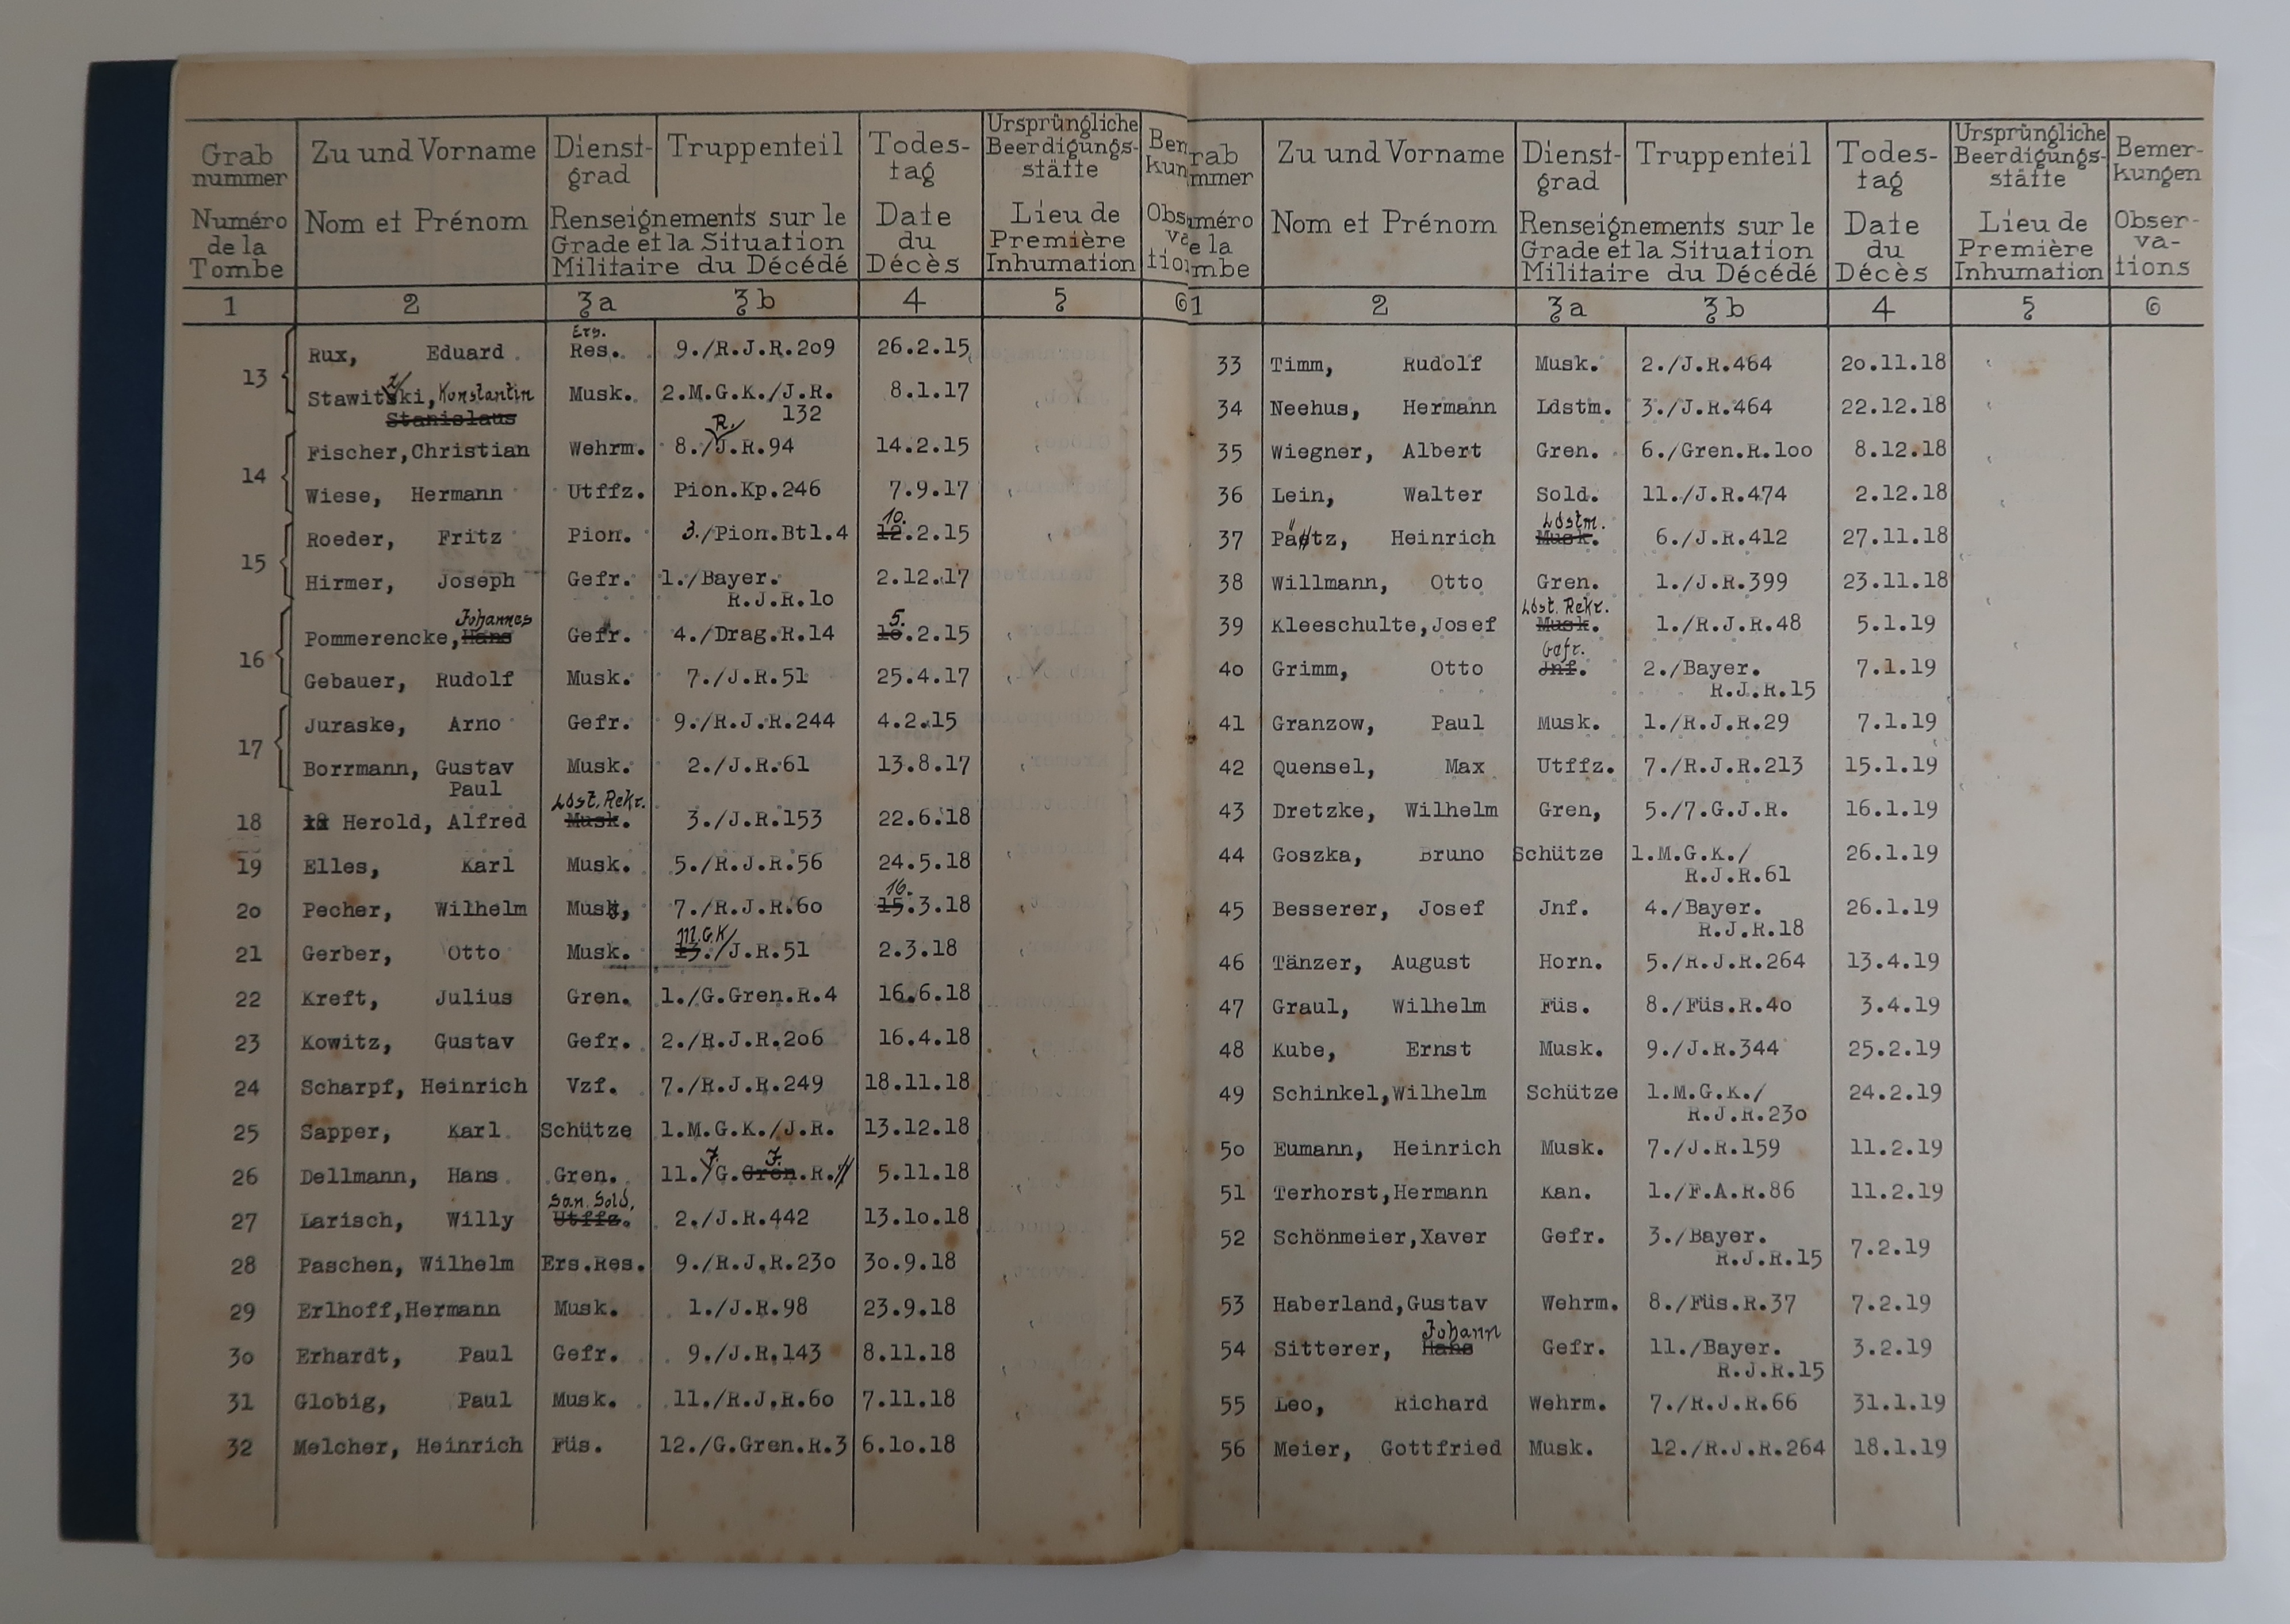 Grab nummer Zu und Vorname Dienst-grad Truppenteil Todes-tag Ursprüngliche Beerdigungs-stätte Ben kun
Numéro de la Tombe Nom et Prénom Renseignements sur le Grade et la Situation Militaire du Décédé Date du Décès Lieu de Première Inhumation Obs va tio
1 2 3a 3b 4 5 6
13 Rux, Eduard Ers. Res. 9./R.J.R.209 26.2.15
Stawitzki, Konstantin Stanislaus Musk. 2.M.G.K./J.R. 132 8.1.17
14 Fischer,Christian Wehrm. 8./R.J.R.94 14.2.15
Wiese, Hermann Utffz. Pion.Kp.246 7.9.17
15 Roeder, Fritz Pion. 3./Pion.Btl.4 10. 12.2.15
Hirmer, Joseph Gefr. 1./Bayer. R.J.R.10 2.12.17
16 Pommerencke, Johannes Hans Gefr. 4./Drag.R.14 5. 10.2.15
Gebauer, Rudolf Musk. 7./J.R.51 25.4.17
17 Juraske, Arno Gefr. 9./R.J.R.244 4.2.15
Borrmann, Gustav Paul Musk. 2./J.R.61 13.8.17
18 18 Herold, Alfred Ldst. Rekr. Musk. 3./J.R.153 22.6.18
19 Elles, Karl Musk. 5./R.J.R.56 24.5.18
20 Pecher, Wilhelm Musk, 7./R.J.R.60 16. 15.3.18
21 Gerber, Otto Musk. M.G.K/ 13./J.R.51 2.3.18
22 Kreft, Julius Gren. 1./G.Gren.R.4 16.6.18
23 Kowitz, Gustav Gefr. 2./R.J.R.206 16.4.18
24 Scharpf, Heinrich Vzf. 7./R.J.R.249 18.11.18
25 Sapper, Karl Schütze 1.M.G.K./J.R. 13.12.18
26 Dellmann, Hans Gren. 11./ J. G. J. Gren.R. 5.11.18
27 Larisch, Willy San. Sold. Utffz. 2./J.R.442 13.10.18
28 Paschen, Wilhelm Ers.Res. 9./R.J.R.230 30.9.18
29 Erlhoff,Hermann Musk. 1./J.R.98 23.9.18
30 Erhardt, Paul Gefr. 9./J.R.143 8.11.18
31 Globig, Paul Musk. 11./R.J.R.60 7.11.18
32 Melcher, Heinrich Füs. 12./G.Gren.R.3 6.10.18
rab mmer Zu und Vorname Dienst-grad Truppenteil Todes-tag Ursprüngliche Beerdigungs-stätte Bemer-kungen
uméro e la mbe Nom et Prénom Renseignements sur le Grade et la Situation Militaire du Décédé Date du Décès Lieu de Première Inhumation Obser-va-tions
1 2 3a 3b 4 5 6
33 Timm, Rudolf Musk. 2./J.R.464 20.11.18
34 Neehus, Hermann Ldstm. 3./J.R.464 22.12.18
35 Wiegner, Albert Gren. 6./Gren.R.100 8.12.18
36 Lein, Walter Sold. 11./J.R.474 2.12.18
37 Päetz, Heinrich Ldstm. Musk. 6./J.R.412 27.11.18
38 Willmann, Otto Gren. 1./J.R.399 23.11.18
39 Kleeschulte,Josef Ldst. Rekr. Musk. 1./R.J.R.48 5.1.19
40 Grimm, Otto Gefr. Jnf. 2./Bayer. R.J.R.15 7.1.19
41 Granzow, Paul Musk. 1./R.J.R.29 7.1.19
42 Quensel, Max Utffz. 7./R.J.R.213 15.1.19
43 Dretzke, Wilhelm Gren, 5./7.G.J.R. 16.1.19
44 Goszka, Bruno Schütze 1.M.G.K./ R.J.R.61 26.1.19
45 Besserer, Josef Jnf. 4./Bayer. R.J.R.18 26.1.19
46 Tänzer, August Horn. 5./R.J.R.264 13.4.19
47 Graul, Wilhelm Füs. 8./Füs.R.40 3.4.19
48 Kube, Ernst Musk. 9./J.R.344 25.2.19
49 Schinkel,Wilhelm Schütze 1.M.G.K./ R.J.R.230 24.2.19
50 Eumann, Heinrich Musk. 7./J.R.159 11.2.19
51 Terhorst,Hermann Kan. 1./F.A.R.86 11.2.19
52 Schönmeier,Xaver Gefr. 3./Bayer. R.J.R.15 7.2.19
53 Haberland,Gustav Wehrm. 8./Füs.R.37 7.2.19
54 Sitterer, Johann Hans Gefr. 11./Bayer. R.J.R.15 3.2.19
55 Leo, Richard Wehrm. 7./R.J.R.66 31.1.19
56 Meier, Gottfried Musk. 12./R.J.R.264 18.1.19